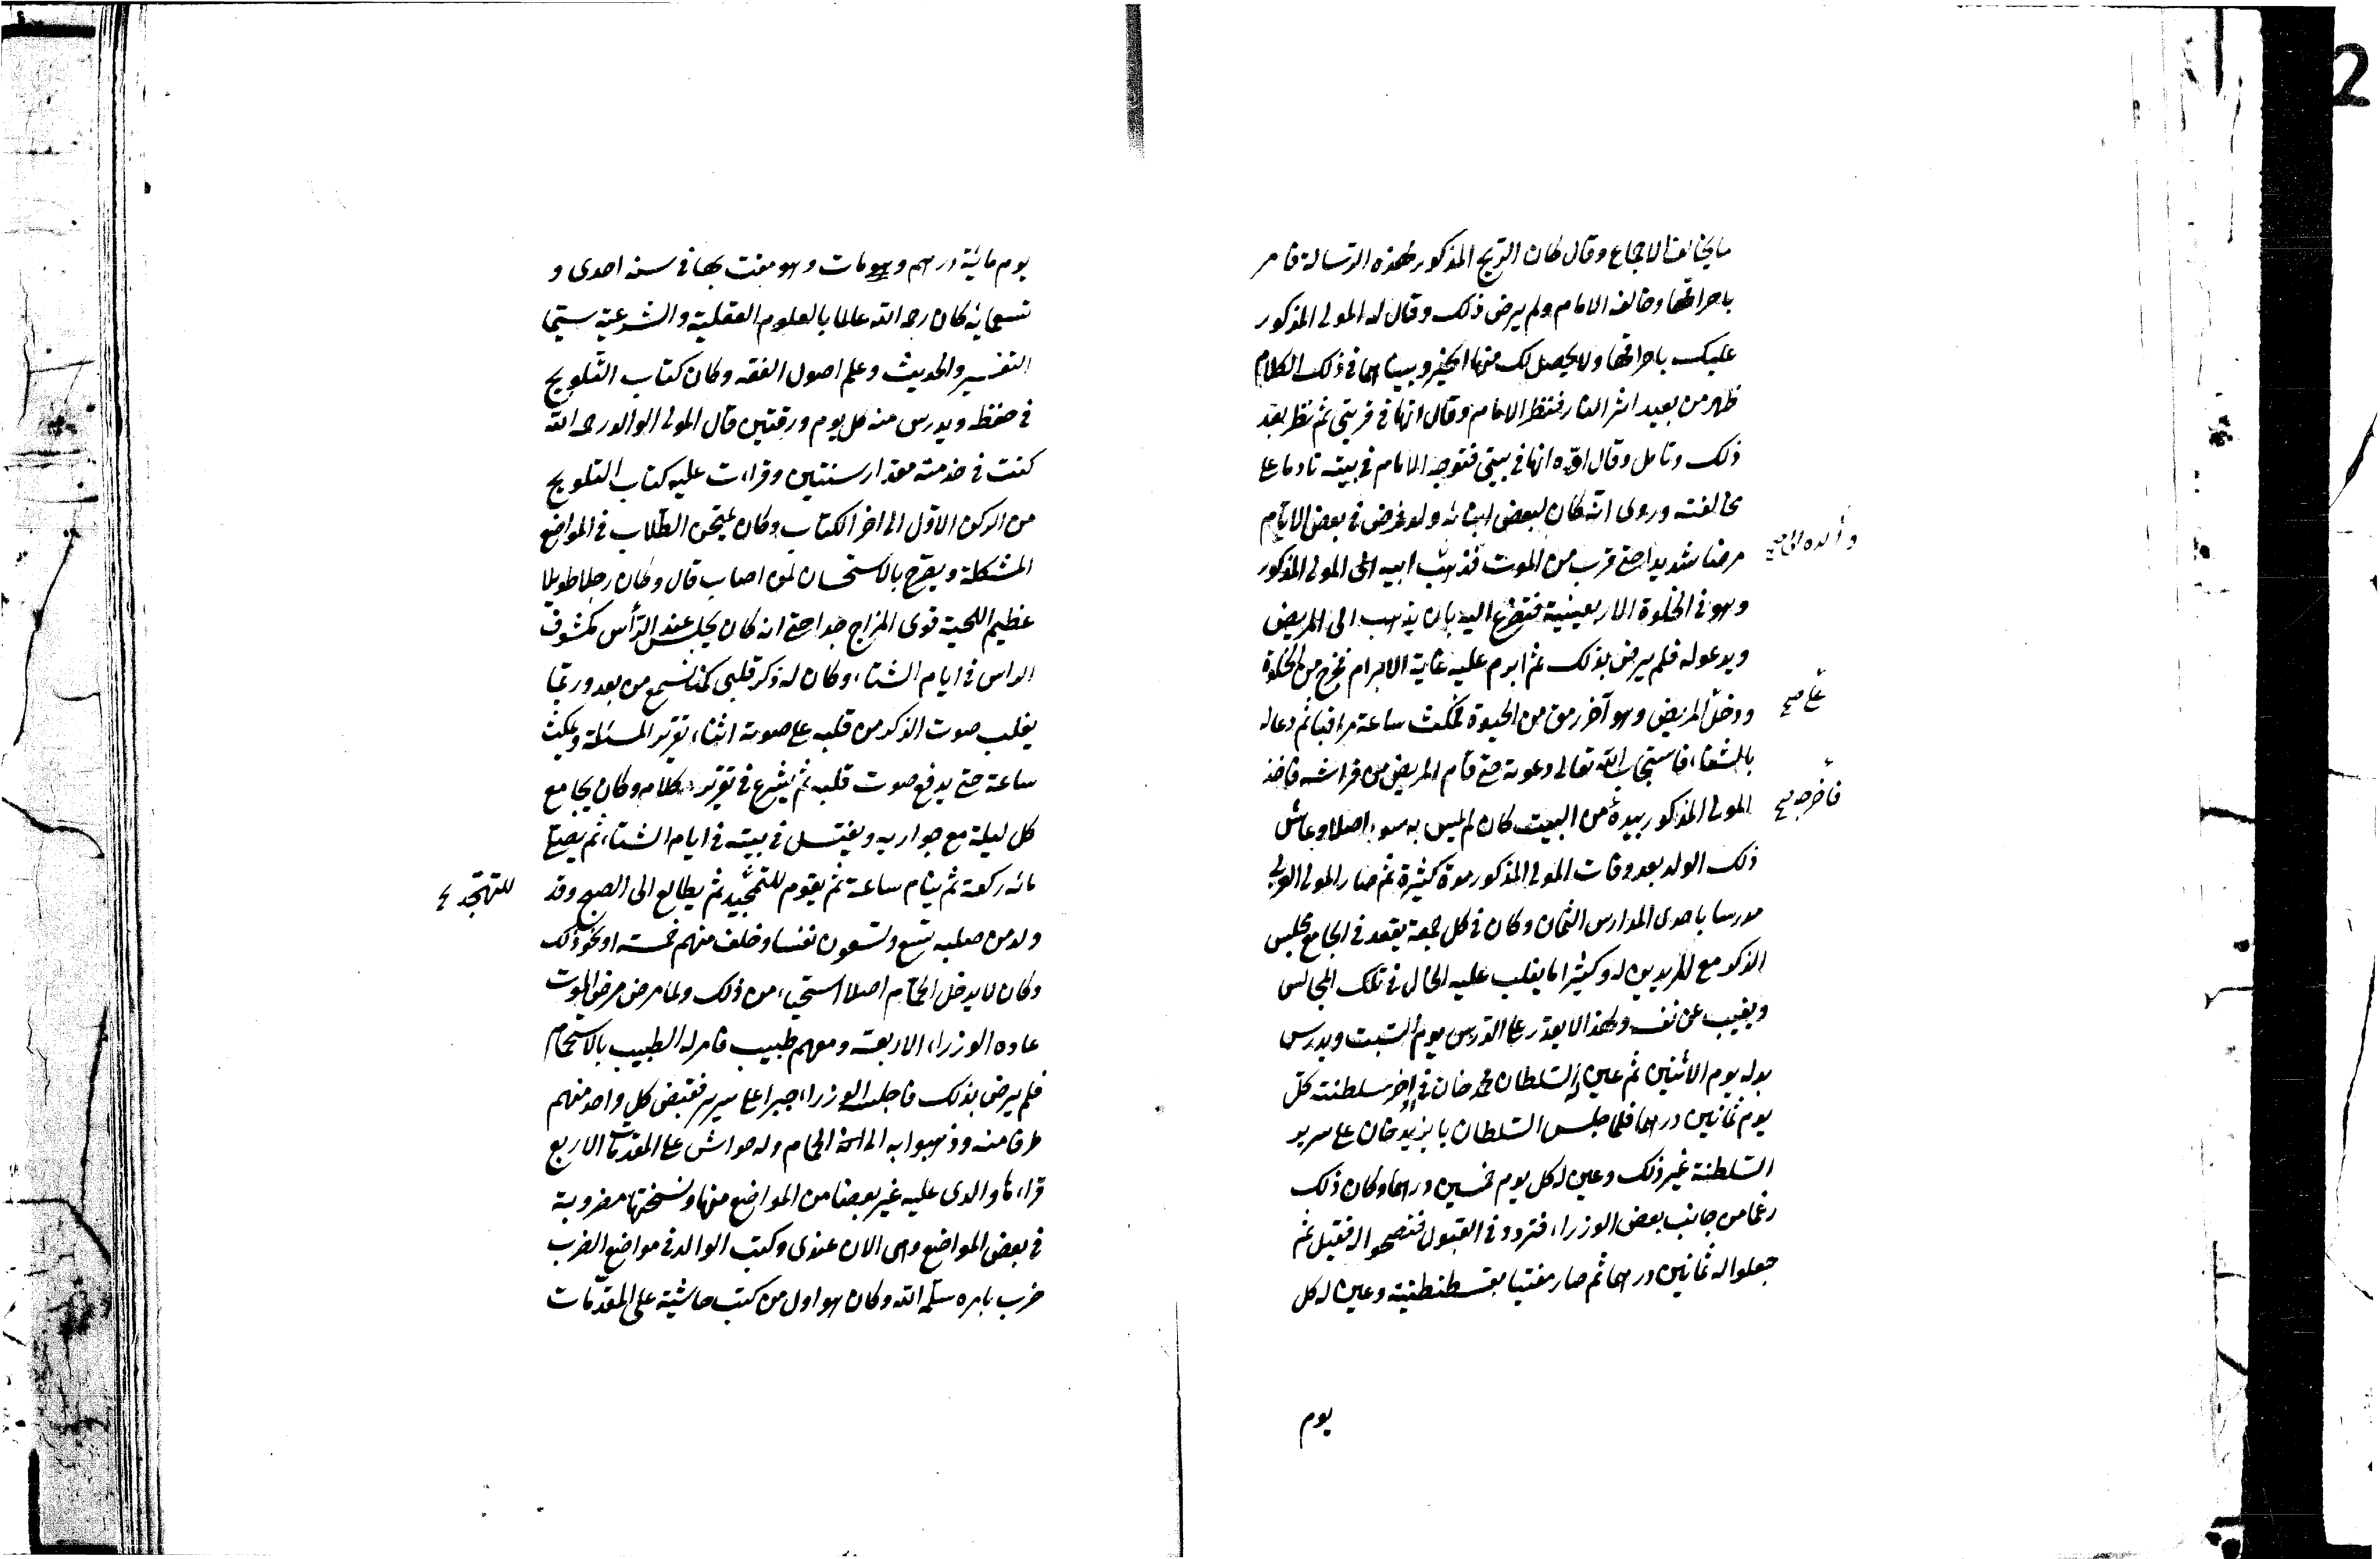 ما يخالف الاجماع وقال لمان الريح المذكور لهذه الرسالة فامر
باحراقها وخالف الامام ولم يرض ذلك وقال له المولى المذكور
عليك باحراقها ولا يحصل لك منها الخير وبينا هما في ذلك الكلام
ظهر من بعيد اثر النار فنظر الامام وقال انها في قريتي ثم نظر بعد
ذلك وتامل وقال اوّه انها في بيتي فتوجه الامام في بيته نادما على
مخالفته وروى انه كان لبعض ابنائه ولد مرض في بعض الايام
مرضا شديدا حتى قرب من الموت فذهب ابيه الى المولى المذكور
والده الى صح
وهو في الخلوة الاربعينية فتضرع اليه بان يذهب الى المريض
ويدعو له فلم يرض بذلك ثم ابرم عليه غاية الابرام فخرج من الخلوة
ودخل المريض وهو آخر رمق من الحيوة فمكث ساعة مراقبا ثم دعا له
على صح
بالشفاء فاستجاب الله تعالى دعوته حتى قام المريض من فراشه فاخذ
المولى المذكور بيده من البيت كان لم يمس به سوء اصلا وعاش
فاخرجه صح
ذلك الولد بعد وفات المولى المذكور مدة كثيرة ثم صار المولى العربي
مدرسا باحدى المدارس الثمان وكان في كل جمعة يقعد في الجامع مجلس
الذكر مع المريدين له وكثيرا ما يغلب عليه الحال في تلك المجالس
ويغيب عن نفسه ولهذا لا يقدر على الدرس يوم السبت ويدرس
بدله يوم الاثنين ثم عين السلطان محمد خان في اخر سلطنته كل
يوم ثمانين درهما فلما جلس السلطان بايزيد خان على سرير
السلطنة غير ذلك وعين له كل يوم خمسين درهما وكان ذلك
رغما من جانب بعض الوزراء فتردد في القبول فنصحوا له فقبل ثم
جعلوا له ثمانين درهما ثم صار مفتيا بقسطنطنية وعين له كل
يوم
يوم مائة درهم وهو مات وهو مفت بها في سنه احدى و
تسعمائه كان رحمه الله عالما بالعلوم العقلية والشرعية سيما
التفسير والحديث وعلم اصول الفقه وكان كتاب التلويح
في حفظه ويدرس منه كل يوم ورقتين قال المولى الوالد رحمه الله
كنت في خدمته مقدار سنتين وقراءت عليه كتاب التلويح
من الركن الاول الى اخر الكتاب وكان يمتحن الطلاب في المواضع
المشكلة ويصرح بالاستحسان لمن اصاب قال وكان رجلا طويلا
عظيم اللحية قوى المزاج جدا حتى انه كان يجلس عند الدرس مكشوف
الراس في ايام الشتاء وكان له ذكر قلبي كنا نسمع من بعد وربما
يغلب صوت الذكر من قلبه على صوته اثناء تقرير المسئلة ويمكث
ساعة حتى يدفع صوت قلبه ثم يشرع في تقرير كلامه وكان يجامع
كل ليلة مع جواريه ويغتسل في بيته في ايام الشتاء ثم يصلي
مائه ركعة ثم ينام ساعة ثم يقوم للتمجيد ثم يطالع الى الصبح وقد
للتهجد
ولد من صلبه تسع وتسعون نفسا وخلف منهم خمسه او نحو ذلك
وكان لا يدخل الحمام اصلا استحياء من ذلك ولما مرض مرض الموت
عاده الوزراء الاربعة ومعهم طبيب فامر له الطبيب بالاستحمام
فلم يرض بذلك فاجلسه الوزراء جبرا على سرير فقبض كل واحد منهم
طرفا منه وذهبوا به الى الحمام وله حواش على المقدمات الاربع
قراءها والدى عليه غير بعضا من المواضع منها ونسختها مضروبة
في بعض المواضع وهى الان عندى وكتب الوالد في مواضع الضرب
ضرب بامره سلمه الله وكان هو اول من كتب حاشية على المقدمات